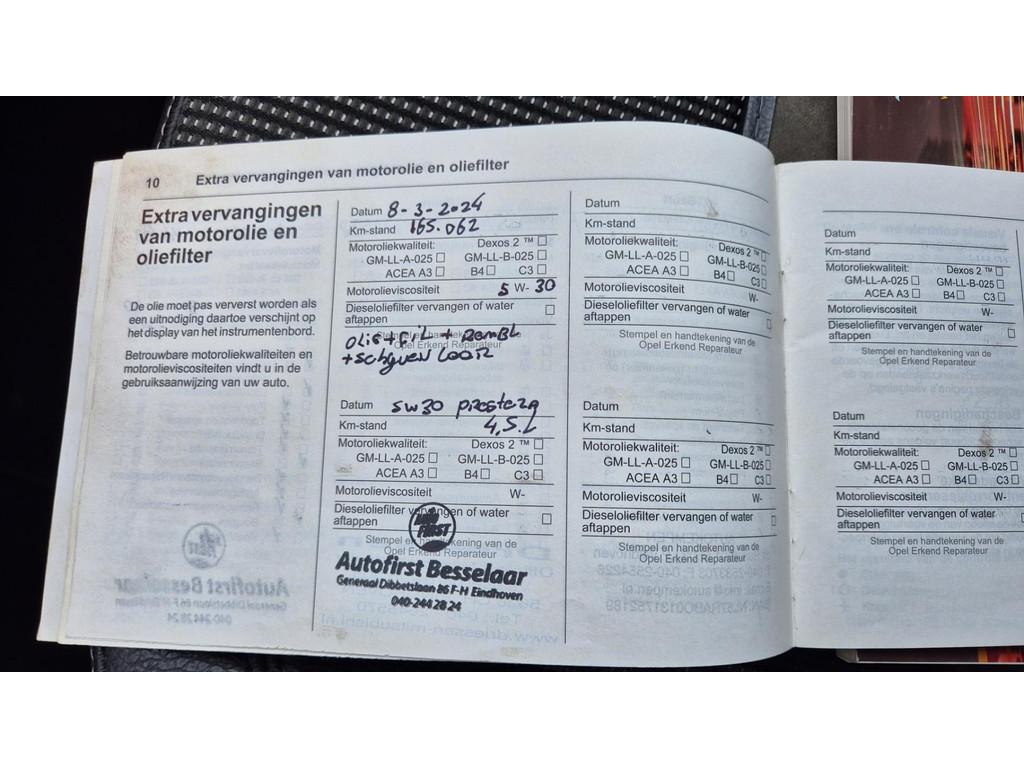 10 Extra vervangingen van motorolie en oliefilter
Extra vervangingen
van motorolie en
oliefilter
De olie moet pas ververst worden als
een uitnodiging daartoe verschijnt op
het display van het instrumentenbord.
Betrouwbare motoroliekwaliteiten en
motorolieviscositeiten vindt u in de
gebruiksaanwijzing van uw auto.
Datum 8-3-2024
Km-stand 165.062
Motoroliekwaliteit: Dexos 2 ™ □
GM-LL-A-025 □ GM-LL-B-025 □
ACEA A3 □ B4 □ C3 □
Motorolieviscositeit 5 W- 30
Dieseloliefilter vervangen of water □
aftappen
Stempel en handtekening van de
Opel Erkend Reparateur
olie + fil +
+ schijven
Datum 5w30
Km-stand 4,5.L
Motoroliekwaliteit: Dexos 2 ™ □
GM-LL-A-025 □ GM-LL-B-025 □
ACEA A3 □ B4 □ C3 □
Motorolieviscositeit W-
Dieseloliefilter vervangen of water □
aftappen
Stempel en handtekening van de
Opel Erkend Reparateur
FIRST
Autofirst Besselaar
Generaal Dibbetslaan 86 F-H Eindhoven
040-244 28 24
Datum
Km-stand
Motoroliekwaliteit: Dexos 2 ™ □
GM-LL-A-025 □ GM-LL-B-025 □
ACEA A3 □ B4 □ C3 □
Motorolieviscositeit W-
Dieseloliefilter vervangen of water □
aftappen
Stempel en handtekening van de
Opel Erkend Reparateur
Datum
Km-stand
Motoroliekwaliteit: Dexos 2 ™ □
GM-LL-A-025 □ GM-LL-B-025 □
ACEA A3 □ B4 □ C3 □
Motorolieviscositeit W-
Dieseloliefilter vervangen of water □
aftappen
Stempel en handtekening van de
Opel Erkend Reparateur
Datum
Km-stand
Motoroliekwaliteit: Dexos 2 ™ □
GM-LL-A-025 □ GM-LL-B-025 □
ACEA A3 □ B4 □ C3 □
Motorolieviscositeit W-
Dieseloliefilter vervangen of water □
aftappen
Stempel en handtekening van de
Opel Erkend Reparateur
Datum
Km-stand
Motoroliekwaliteit: Dexos 2 ™ □
GM-LL-A-025 □ GM-LL-B-025 □
ACEA A3 □ B4 □ C3 □
Motorolieviscositeit W-
Dieseloliefilter vervangen of water □
aftappen
Stempel en handtekening van de
Opel Erkend Reparateur